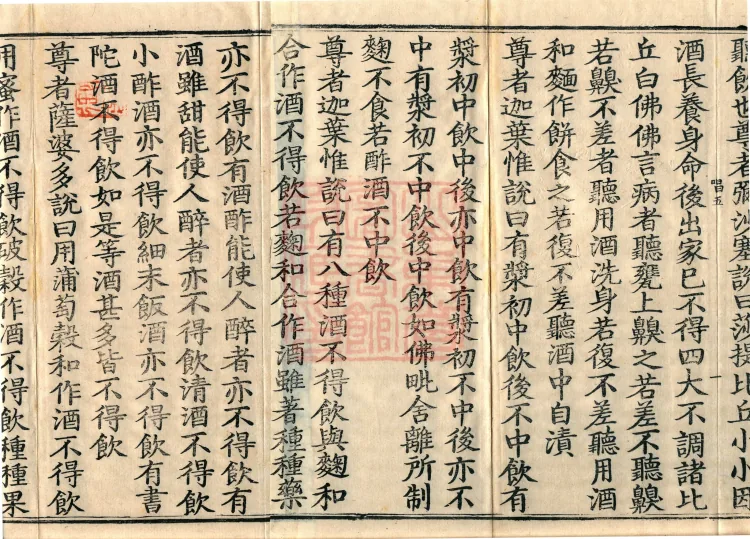 聽飲也尊者彌沙塞說曰莎提比丘小小因
唱五 一
酒長養身命後出家已不得四大不調諸比
丘白佛佛言病者聽甕上齅之若差不聽齅
若齅不差者聽用酒洗身若復不差聽用酒
和麵作餅食之若復不差聽酒中自漬
尊者迦葉惟說曰有漿初中飲後不中飲有
漿初中飲中後亦中飲有漿初不中後亦不
中有漿初不中飲後中飲如佛毗舍離所制
麴不食若酢酒不中飲
尊者迦葉惟說曰有八種酒不得飲與麴和
合作酒不得飲若麴和合作酒雖著種種藥
亦不得飲有酒酢能使人醉者亦不得飲有
酒雖甜能使人醉者亦不得飲清酒不得飲
小酢酒亦不得飲細末飯酒亦不得飲有書
陀酒不得飲如是等酒甚多皆不得飲
尊者薩婆多說曰用蒲萄穀和作酒不得飲
用蜜作酒不得飲破穀作酒不得飲種種果